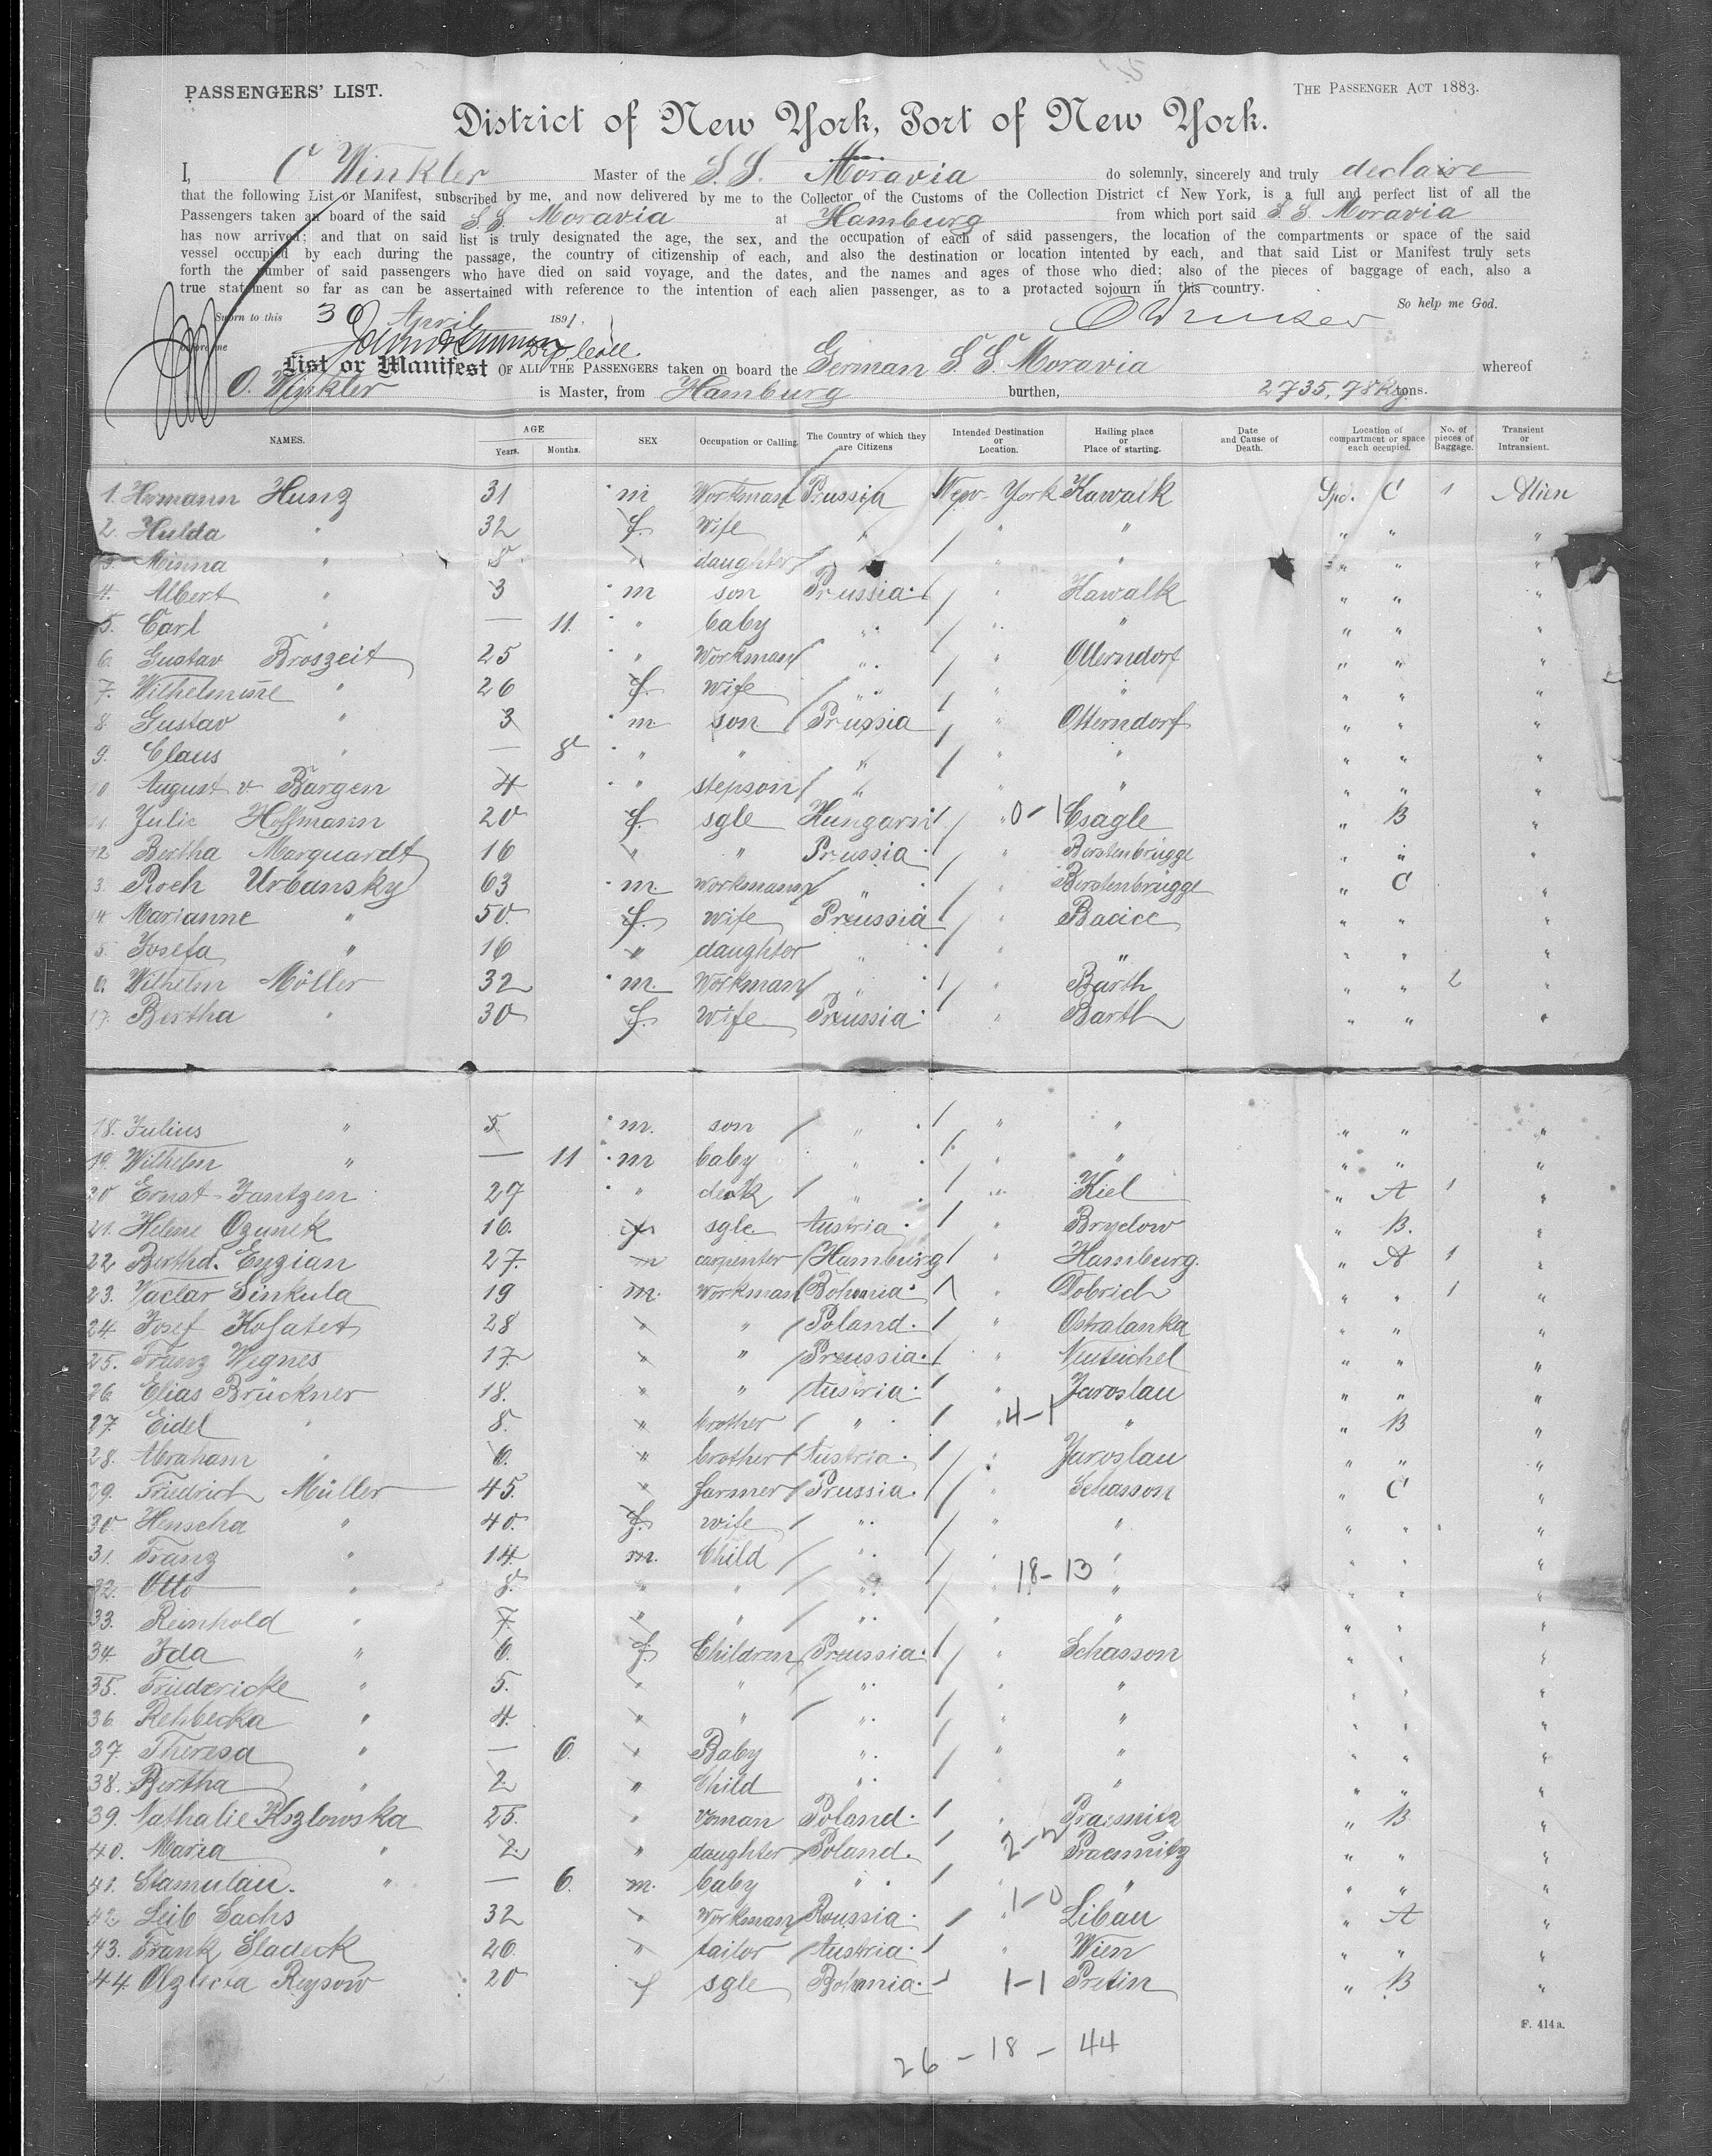 PASSENGERS' LIST.
THE PASSENGER ACT 1883.
District of New York, Port of New York.
I, C Winkler Master of the S.S. Moravia do solemnly, sincerely and truly declaire
that the following List or Manifest, subscribed by me, and now delivered by me to the Collector of the Customs of the Collection District cf New York, is a full and perfect list of all the
Passengers taken an board of the said S.S. Moravia at Hamburg from which port said S.S. Moravia
has now arrived; and that on said list is truly designated the age, the sex, and the occupation of each of said passengers, the location of the compartments or space of the said
vessel occupied by each during the passage, the country of citizenship of each, and also the destination or location intented by each, and that said List or Manifest truly sets
forth the number of said passengers who have died on said voyage, and the dates, and the names and ages of those who died; also of the pieces of baggage of each, also a
true statement so far as can be assertained with reference to the intention of each alien passenger, as to a protacted sojourn in this country.
So help me God.
Sworn to this 30 April 1891.
before me
List or Manifest OF ALL THE PASSENGERS taken on board the German S.S. Moravia whereof
O. Winkler is Master, from Hamburg burthen, 2735,78 tons.
NAMES. AGE Years. Months. SEX Occupation or Calling. The Country of which they are Citizens Intended Destination or Location. Hailing place or Place of starting. Date and Cause of Death. Location of compartment or space each occupied. No. of pieces of Baggage. Transient or Intransient.
1. Hermann Hunz 31 m Workman Prussia New-York Kawalk Spd. C 1 Alien
2. Hulda " 32 f. Wife " " " " " "
3. Minna " 8 " daughter " " " " " "
4. Albert " 3 m son Prussia " Kawalk " " "
5. Carl " — 11. " baby " " " " " "
6. Gustav Broszeit 25 " Workman " " Otterndorf " " "
7. Wilhelmine " 26 f. wife " " " " " "
8. Gustav " 3 m son Prussia " Otterndorf " " "
9. Claus " — 8 " " " " " " " "
10 August v Bargen 4 " stepson " " " " " "
11. Julie Hoffmann 20 f. sgle Hungarn " 0-1 Csagle " B "
12 Bertha Marquardt 16 " " Prussia " Berstenbrügge " " "
3. Roch Urbansky 63 m. workmann " " Berstenbrügge " C "
4. Marianne " 50. f. wife Preussia " Bacice " " "
5. Josefa " 16 " daughter " " " " " "
6. Wilhelm Möller 32 m. Workman " " Barth " " 2 "
17. Bertha " 30 f. Wife Preussia " Barth " " "
18. Julius " 5. m. son " " " " " "
19. Wilhelm " — 11 m baby " " " " " "
20 Ernst Jantzen 27 " " " Kiel " A 1 "
21. Helene Ozunek 16. f. sgle. Austria " Brydow " B. "
22 Berthd. Enzian 27. m carpenter Hamburg " Hamburg. " A 1 "
23. Vaclav Sinkula 19 m. Workman Bohemia " Dobrich " " 1 "
24 Josef 28 " " Poland. " Ostralanka " " "
25. Franz Wegnes 17. " " Preussia. " Neuteichel " " "
26. Elias Brückner 18. " " Austria. " Jaroslau " " "
27. Eidel " 8. " brother " " 4-1 " " B "
28. Abraham " 6. " brother Austria. " Jaroslau " " "
29. Friedrich Müller 45. " farmer Prussia. " Schasson " C "
30. Henscha " 40. f. wife " " " " " "
31. Franz " 14. m. Child " " " " " "
32. Otto " 8. " " " " 18-13 " " " "
33. Reinhold " 7. " " " " " " " "
34. Ida " 6. f. Children Preussia. " Schasson " " "
35. Friedericke " 5. " " " " " " " "
36. Rehbecka " 4. " " " " " " " "
37. Theresa " — 6. " Baby " " " " " "
38. Bertha " 2. " Child " " " " " "
39. Nathalie Kozlowska 25. " woman Poland. " Praesnitz " B "
40. Maria " 2. " daughter Poland. 2-2 Praesnitz " " "
41. Stamulau. " — 6. m. baby " " " " " "
42 Leib Sachs 32 " Workman Roussia. " 1-0 Libau " A "
43. Frank Sladeck 26. " tailor Austria. " Wien " " "
44. Reysow 20 f sgle Bohmia. 1-1 Pretin " B "
F. 414a.
26 - 18 - 44